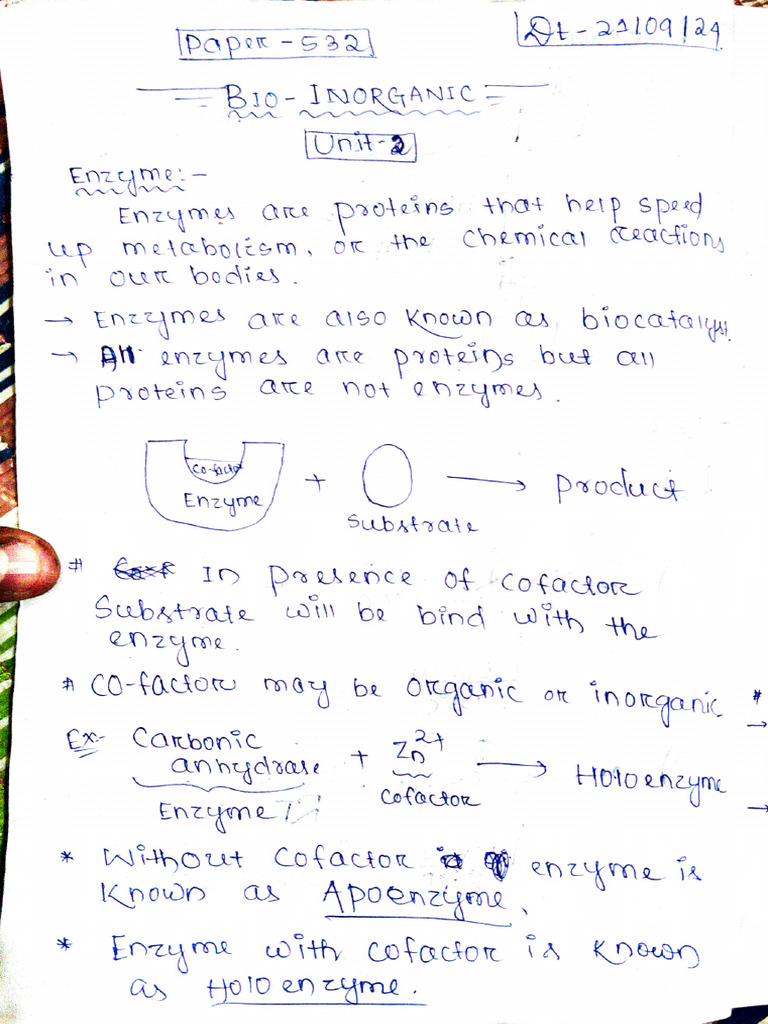 Paper - 532
Dt - 21/09/24
BIO - INORGANIC
Unit-2
Enzyme:-
Enzymes are proteins that help speed
up metabolism, or the chemical reactions
in our bodies.
→ Enzymes are also known as biocatalyst.
→ All enzymes are proteins but all
proteins are not enzymes.
Co-factor
Enzyme + Substrate → product
# In presence of cofactor
Substrate will be bind with the
enzyme.
# CO-factor may be organic or inorganic
Ex- Carbonic
anhydrase + Zn2+ → Holoenzyme
Enzyme cofactor
* Without cofactor enzyme is
known as Apoenzyme,
* Enzyme with cofactor is known
as Holoenzyme.